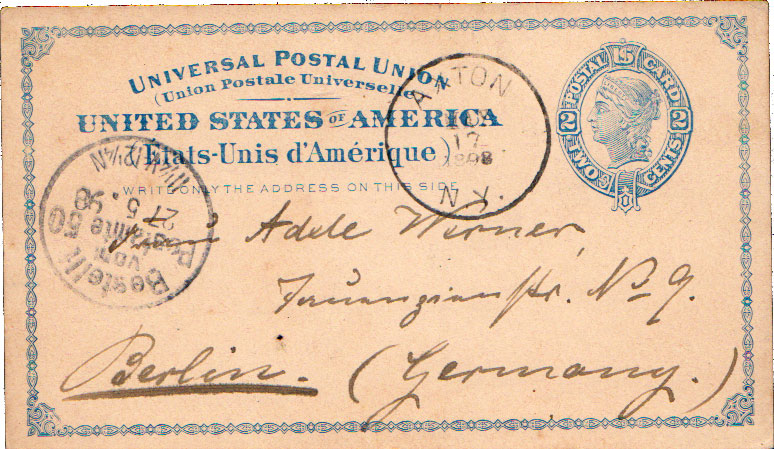 UNIVERSAL POSTAL UNION
(Union Postale Universelle)
UNITED STATES OF AMERICA
(États-Unis d'Amérique)
WRITE ONLY THE ADDRESS ON THIS SIDE
POSTAL CARD
2 TWO CENTS 2
N.M.
17
1898
Bestellt
vom
Postamte 50
27
5. 98
Adele Werner
Tauenzienstr. No 9.
Berlin. (Germany.)